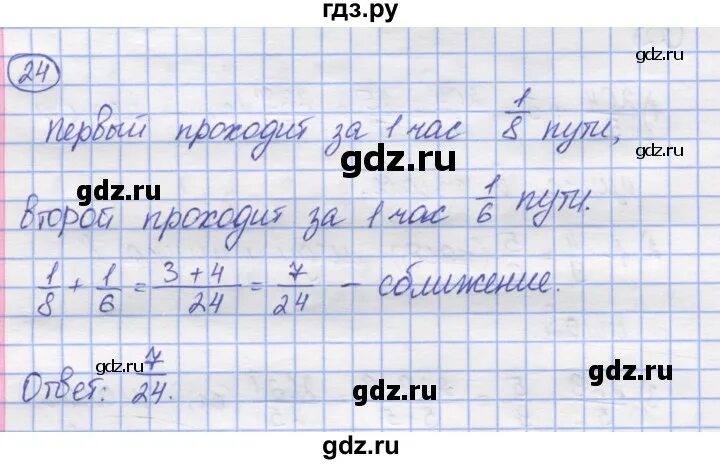 гдз.ру
gdz.ru
24
первый проходит за 1 час 1/8 пути,
gdz.ru
gdz.ru
второй проходит за 1 час 1/6 пути.
gdz.ru
gdz.ru
1/8 + 1/6 = 3+4/24 = 7/24 – сближение.
gdz.ru
gdz.ru
Ответ: 7/24.
gdz.ru
gdz.ru
gdz.ru